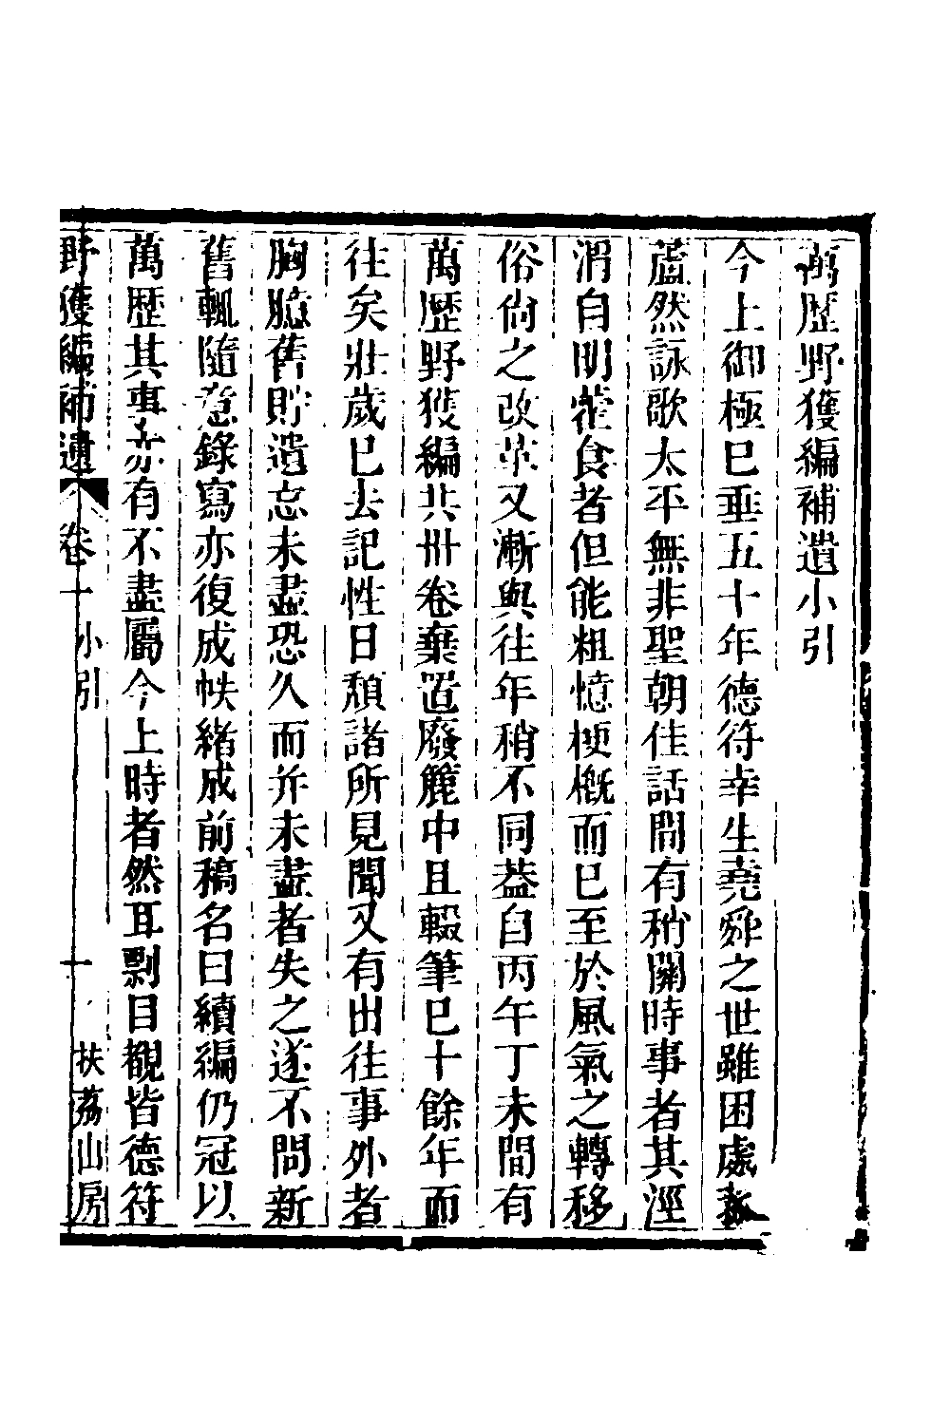 萬歴野獲編補遺小引
今上御極已垂五十年德符幸生堯舜之世雖困處
蘆然詠歌太平無非聖朝佳話間有稍關時事者其涇
渭自明藿食者但能粗憶梗槪而已至於風氣之轉移
俗尙之改革又漸與往年稍不同葢自丙午丁未間有
萬歴野獲編共卅卷棄置廢簏中且輟筆已十餘年而
往矣壯歲已去記性日頹諸所見聞又有出往事外者
胸臆舊貯遺忘未盡恐久而并未盡者失之遂不問新
舊輒隨意錄寫亦復成帙緒成前稿名曰續編仍冠以
萬歴其事亦有不盡屬今上時者然耳剽目覩皆德符
野獲編補遺 卷一 小引 一 扶荔山房